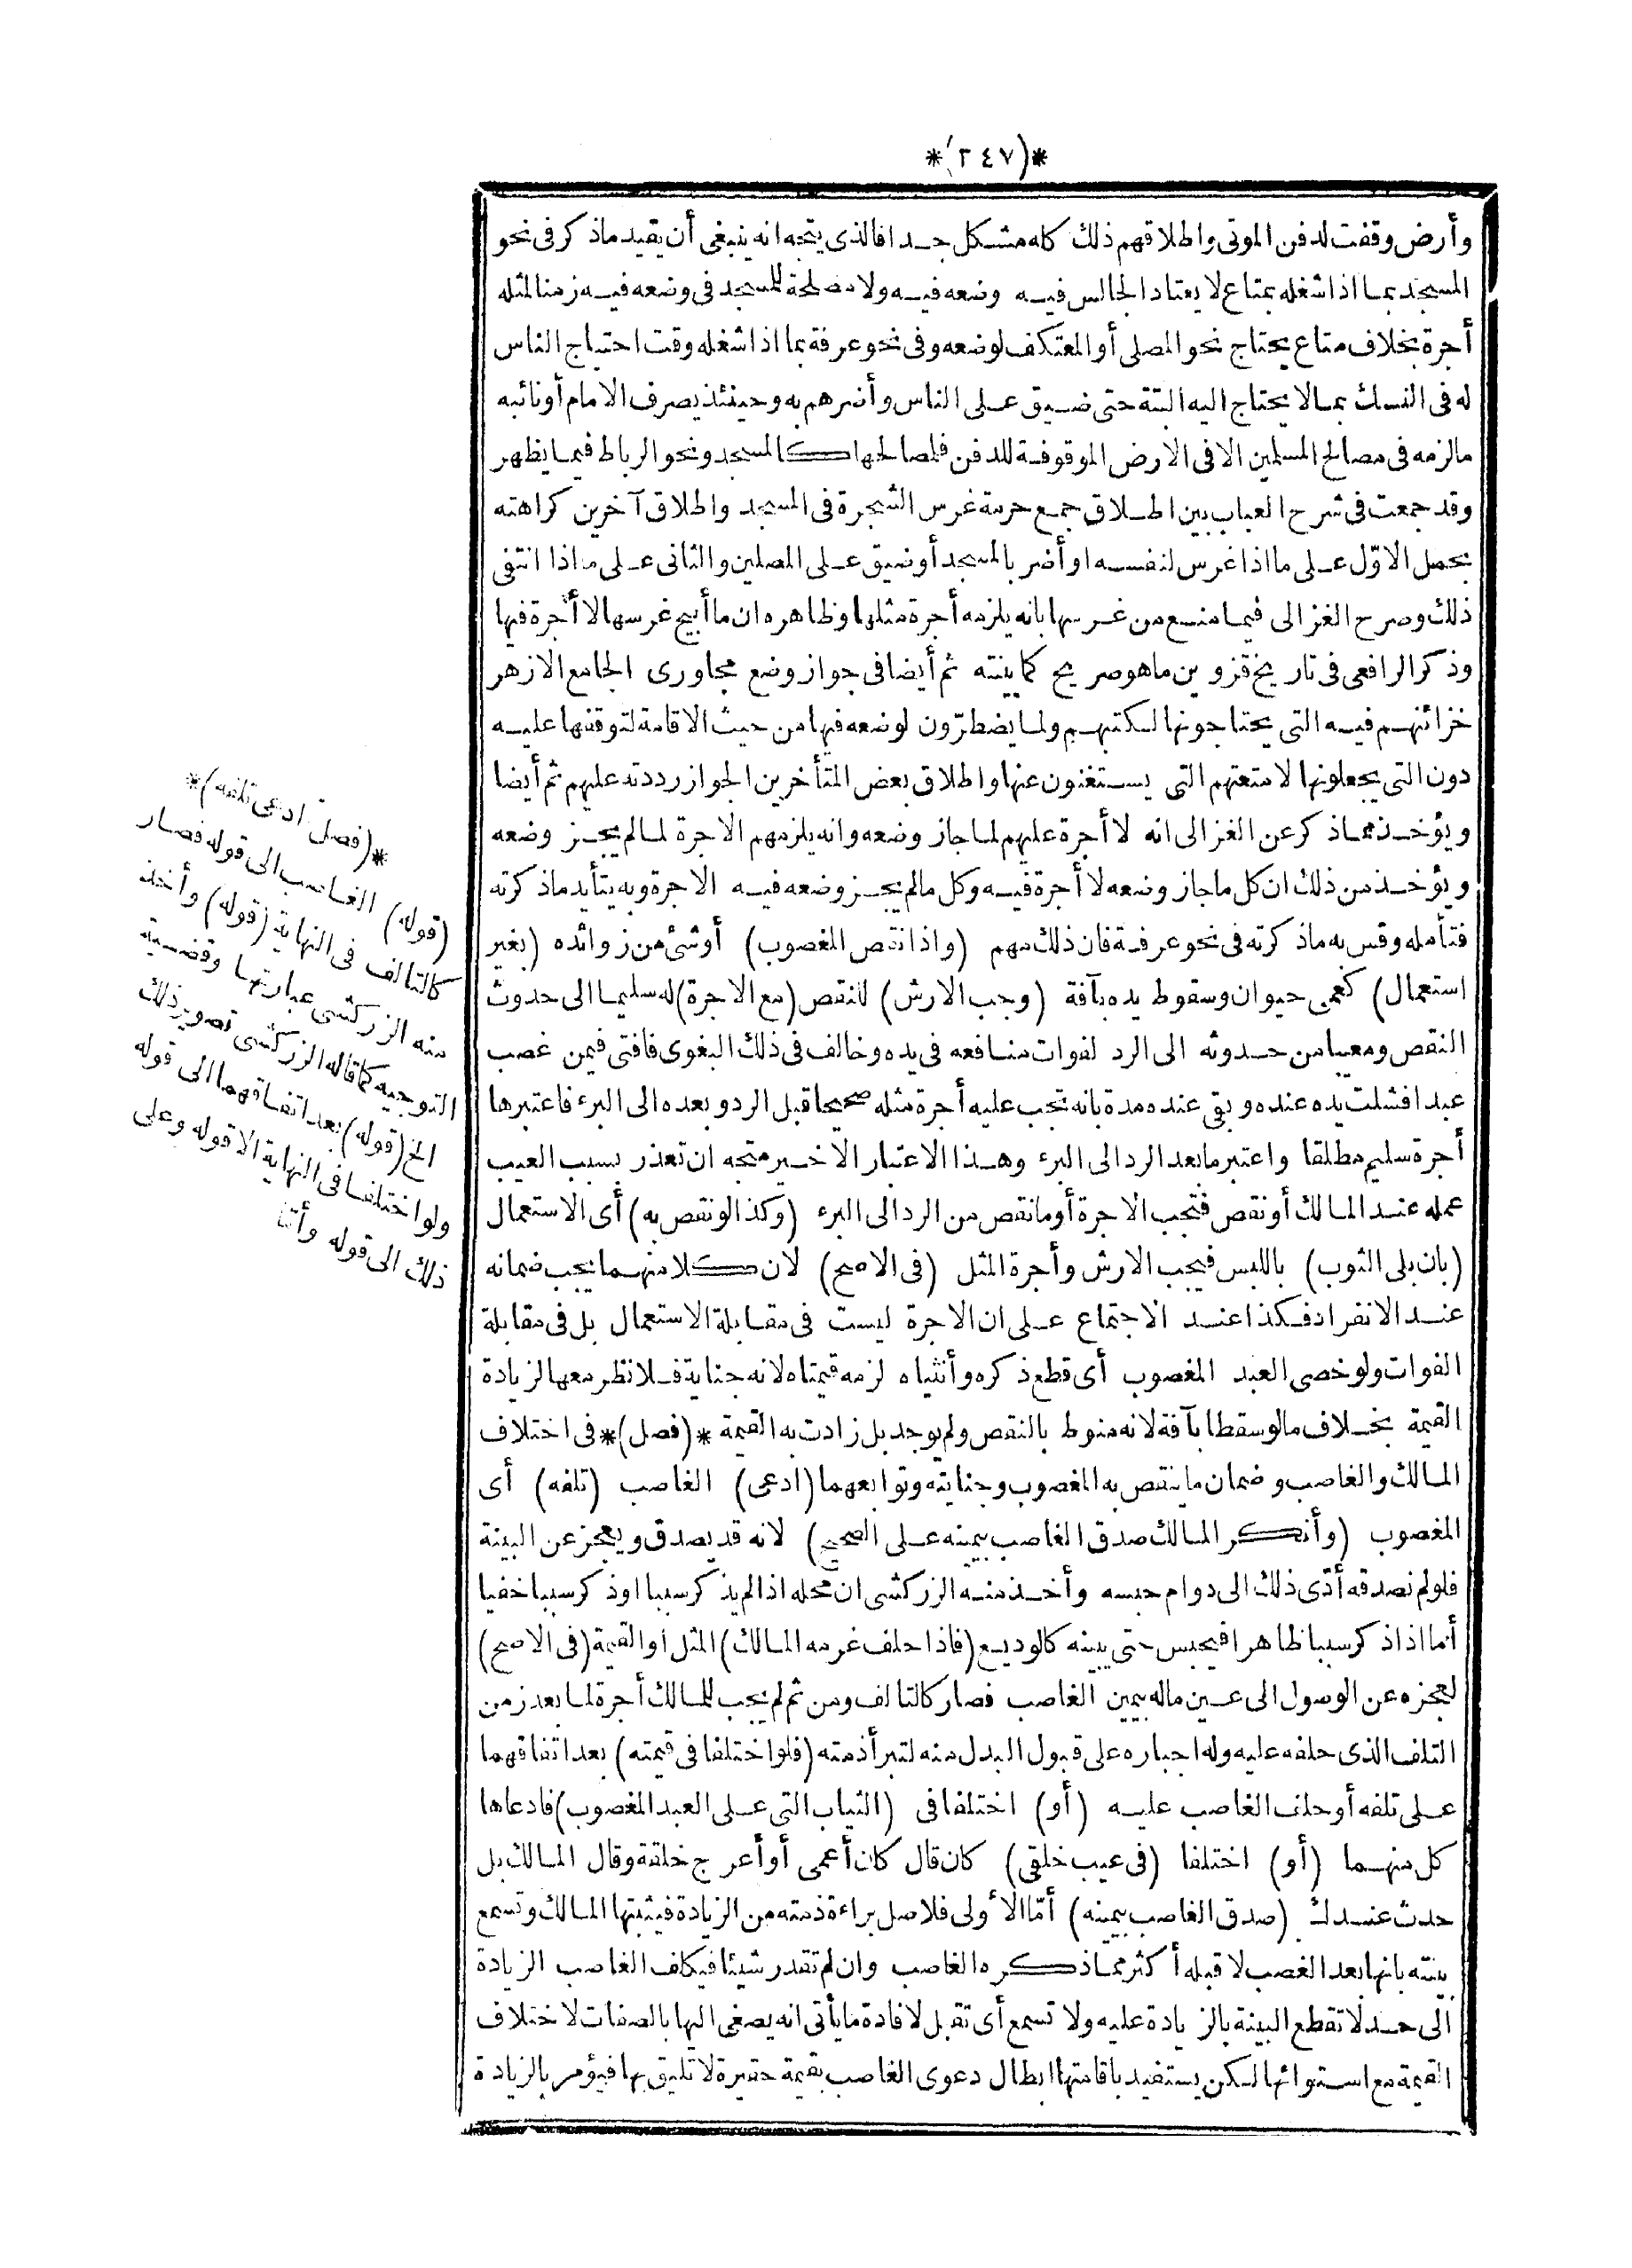 *(٢٤٧)*
وأرض وقفت لدفن الموتى واطلاقهم ذلك كله مشكل جدا فالذى يتجه انه ينبغى أن يقيد ماذكر فى نحو
المسجد بما اذا شغله بمتاع لا يعتاد الجالس فيه وضعه فيه ولا مصلحة للمسجد فى وضعه فيه زمنا لمثله
أجرة بخلاف متاع يحتاج نحو المصلى أو المعتكف لوضعه وفى نحو عرفة بما اذا شغله وقت احتياج الناس
له فى النسك بما لا يحتاج اليه البتة حتى ضيق على الناس وأضرهم به وحينئذ يصرف الامام أو نائبه
مالزمه فى مصالح المسلمين الا فى الارض الموقوفة للدفن فلمصالحها كالمسجد ونحو الرباط فيما يظهر
وقد جمعت فى شرح العباب بين اطلاق جمع حرمة غرس الشجرة فى المسجد واطلاق آخرين كراهته
بحمل الاوّل على ما اذا غرس لنفسه او أضر بالمسجد أو ضيق على المصلين والثانى على ما اذا انتفى
ذلك وصرح الغزالى فيما منع من غرسها بانه يلزمه أجرة مثلها وظاهره ان ما أبيح غرسها لا أجرة فيها
وذكر الرافعى فى تاريخ قزوين ماهو صريح كما بينته ثم أيضا فى جواز وضع مجاورى الجامع الازهر
خزائنهم فيه التى يحتاجونها لكتبهم ولما يضطرّون لوضعه فيها من حيث الاقامة لتوقفها عليه
دون التى يجعلونها لامتعتهم التى يستغنون عنها واطلاق بعض المتأخرين الجواز رددته عليهم ثم أيضا
ويؤخذ مماذكر عن الغزالى انه لا أجرة عليهم لما جاز وضعه وانه يلزمهم الاجرة لما لم يجز وضعه
ويؤخذ من ذلك ان كل ما جاز وضعه لا أجرة فيه وكل مالم يجز وضعه فيه الاجرة وبه يتأيد ماذكرته
فتأمله وقس به ماذكرته فى نحو عرفة فان ذلك مهم (واذا نقص المغصوب) أو شئ من زوائده (بغير
استعمال) كعمى حيوان وسقوط يده بآفة (وجب الارش) للنقص (مع الاجرة) له سليما الى حدوث
النقص ومعيبا من حدوثه الى الرد لفوات منافعه فى يده وخالف فى ذلك البغوى فافتى فيمن غصب
عبدا فشلت يده عنده وبقى عنده مدة بانه تجب عليه أجرة مثله صحيحا قبل الرد وبعده الى البرء فاعتبرها
أجرة سليم مطلقا واعتبر ما بعد الرد الى البرء وهذا الاعتبار الاخير متجه ان تعذر بسبب العيب
عمله عند المالك أو نقص فتجب الاجرة أو ما نقص من الرد الى البرء (وكذا لو نقص به) أى الاستعمال
(بان بلى الثوب) باللبس فيجب الارش وأجرة المثل (فى الاصح) لان كلا منهما يجب ضمانه
عند الانفراد فكذا عند الاجتماع على ان الاجرة ليست فى مقابلة الاستعمال بل فى مقابلة
الفوات ولو خصى العبد المغصوب أى قطع ذكره وأنثياه لزمه قيمتاه لانه جناية فلا نظر معها لزيادة
القيمة بخلاف مالو سقطا بآفة لانه منوط بالنقص ولم يوجد بل زادت به القيمة *(فصل)* فى اختلاف
المالك والغاصب وضمان ما ينقص به المغصوب وجنايته وتوابعهما (ادعى) الغاصب (تلفه) أى
المغصوب (وأنكر المالك صدق الغاصب بيمينه على الصحيح) لانه قد يصدق ويعجز عن البينة
فلو لم نصدقه أدّى ذلك الى دوام حبسه وأخذ منه الزركشى ان محله اذا لم يذكر سببا اوذكر سببا خفيا
أما اذا ذكر سببا ظاهرا فيحبس حتى يبينه كالوديع (فاذا حلف غرمه المالك) المثل أو القيمة (فى الاصح)
لعجزه عن الوصول الى عين ماله بيمين الغاصب فصار كالتالف ومن ثم لم يجب للمالك أجرة لما بعد زمن
التلف الذى حلفه عليه وله اجباره على قبول البدل منه لتبرأ ذمته (فلو اختلفا فى قيمته) بعد اتفاقهما
على تلفه أو حلف الغاصب عليه (أو) اختلفا فى (الثياب التى على العبد المغصوب) فادعاها
كل منهما (أو) اختلفا (فى عيب خلقى) كان قال كان أعمى أو أعرج خلقة وقال المالك بل
حدث عندك (صدق الغاصب بيمينه) أمّا الأولى فلاصل براءة ذمته من الزيادة فيثبتها المالك وتسمع
بينته بانها بعد الغصب لا قبله أكثر مماذكره الغاصب وان لم تقدر شيئا فيكلف الغاصب الزيادة
الى حد لا تقطع البينة بالزيادة عليه ولا تسمع أى تقبل لافادة ما يأتى انه يصغى اليها بالصفات لاختلاف
القيمة مع استوائها لكن يستفيد باقامتها ابطال دعوى الغاصب بقيمة حقيرة لا تليق بها فيؤمر بالزيادة
*(فصل ادعى تلفه)*
(قوله) الغاصب الى قوله فصار
كالتالف فى النهاية (قوله) وأخذ
منه الزركشى عبارتها وقضية
التوجيه كما قاله الزركشى تصوير ذلك
الخ (قوله) بعد اتفاقهما الى قوله
ولو اختلفا فى النهاية الا قوله وعلى
ذلك الى قوله وأمّا